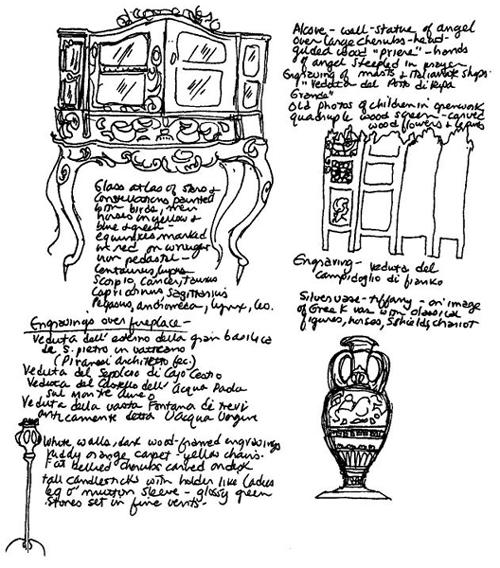 Alcove - wall - statue of angel
over large cherubs - hand
gilded wood "priere" - hands
of angel steepled in prayer -
Engraving of masts & Italianate ships.
"Veduta del Porto di Ripa
Grande"
Old photos of children in openwork
quadruple wood screen - carved
wood flowers &
Glass atlas of stars &
constellations painted
with birds, men
horses in yellow &
blue & green -
equinoxes marked
in red on wrought
iron pedestal -
Centaurus, Lupus
Scorpio, Cancer, Taurus
Capricornus, Sagittarius
Pegasus, Andromeda, Lynx, Leo.
Engraving - Veduta del
Campidoglio di fianko
Silver vase - Tiffany - on image
of Greek vase with classical
figures, horses, shields, chariot
Engravings over fireplace -
Veduta dell' esterno della gran basilica
de S. pietro in vaticano
(Piranesi architetto fec.)
Veduta del Sepolcro di Cajo Cestio
Veduta del Castello dell' Acqua Paola
sul Monte Aureo
Veduta della vasta Fontana di trevi
anticamente detta l'Acqua Vergine
White walls, dark wood-framed engravings
ruddy orange carpet - yellow chairs.
Fat bellied cherubs carved on desk
tall candlesticks with holder like ladies
leg o' mutton sleeve - glossy green
stones set in fine vents -